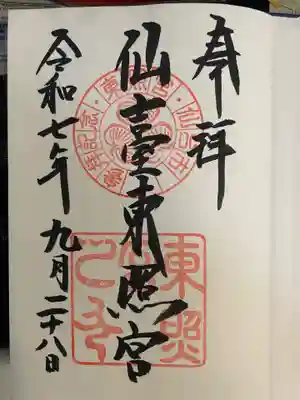 奉拝
仙臺東照宮
令和七年九月二十八日
東照